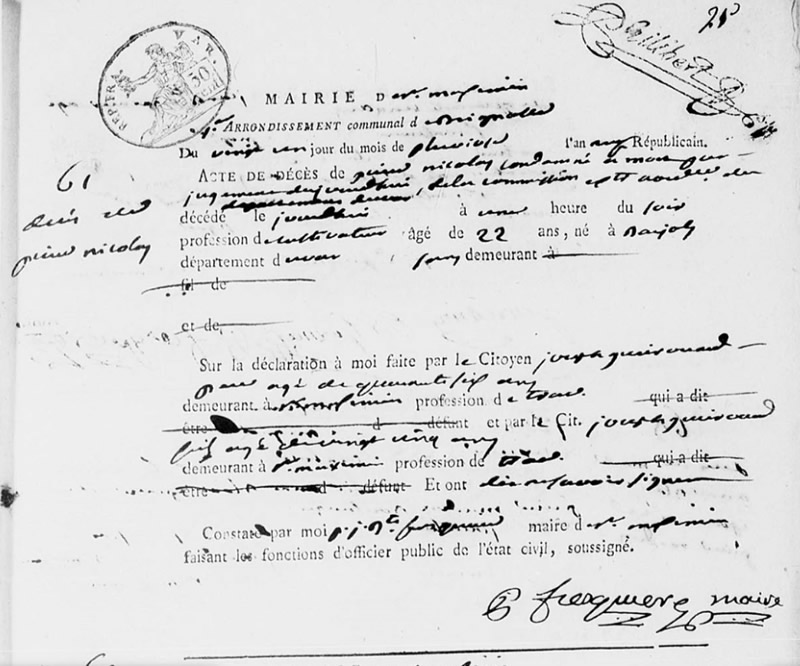 25
Gillibert
REP. FRA. VAR.
50 CEN
MAIRIE D e st. maximin
4e. ARRONDISSEMENT communal d e Brignolle
Du vingt un jour du mois de pluviose l'an neuf Républicain.
61
ACTE DE DÉCÈS de pierre nicolas condamné a mort par
jugement daujourdhui, de la commission extraordre. du
departement du var
décès de
pierre nicolas
décédé le jourdhui à une heure du soir
profession d e cultivateur âgé de 22 ans, né à Barjols
département d u var demeurant à
fil de
et de
Sur la déclaration à moi faite par le Citoyen joseph guirouard
pere agé de quarante six ans
demeurant à st. maximin profession de trav. qui a dit
être d défunt et par le Cit. joseph guirouard
fils agé de vingt cinq ans
demeurant à st. maximin profession de trav. qui a dit
être d défunt Et ont dit ne savoir signer
Constaté par moi p. j. Bte. maire d e st. maximin
faisant les fonctions d'officier public de l'état civil, soussigné.
maire